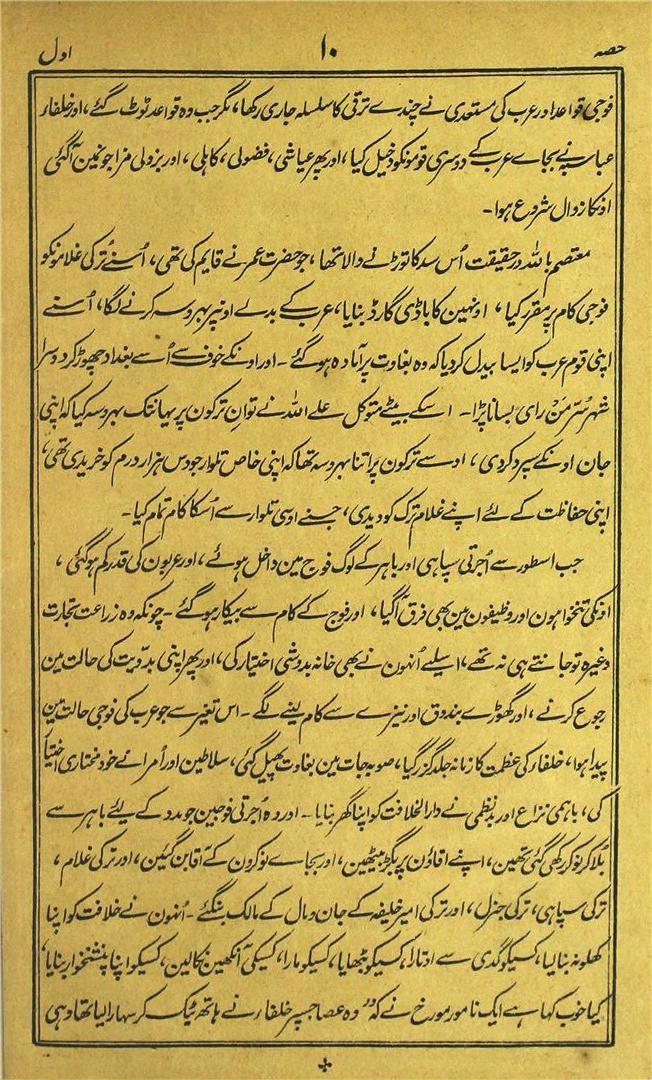 حصہ ۱۰ اول
فوجی قواعد اور عرب کی مستعدی نے چندے ترقی کا سلسلہ جاری رکھا، مگر جب وہ قواعد ٹوٹ گئے، اور خلفاء
عباسیہ نے بجاے عرب کے دوسری قومونکو دخیل کیا، اور پھر عیاشی، فضولی، کاہلی، اور بزدلی مزاجونمین آگئی
اونکا زوال شروع ہوا۔
معتصم باللہ درحقیقت اُس سد کا توڑنے والا تھا، جو حضرت عمر نے قایم کی تھی، اُسنے ترکی غلامونکو
فوجی کام پر مقرر کیا، اونہین کا باڈی گارڈ بنایا، عرب کے بدلے اونپر بہروسہ کرنے لگا، اُسنے
اپنی قوم عرب کو ایسا بیدل کردیا کہ وہ بغاوت پر آمادہ ہوگئے۔ اور اونکے خوف سے اُسے بغداد چھوڑ کر دوسرا
شہر سُرَّ مَنْ رای بسانا پڑا۔ اسکے بیٹے متوکل علے اللہ نے توان ترکون پر یہانتک بہروسہ کیا کہ اپنی
جان اونکے سپرد کردی، اوسے ترکون پر اتنا بہروسہ تھا کہ اپنی خاص تلوار جو دس ہزار درم کو خریدی تھی،
اپنی حفاظت کے لئے اپنے غلام ترک کو دیدی، جسنے اوسی تلوار سے اُسکا کام تمام کیا۔
جب اسطور سے اُجرتی سپاہی اور باہر کے لوگ فوج مین داخل ہوئے، اور عربون کی قدر کم ہوگئی،
اونکی تنخواہون اور وظیفون مین بھی فرق آگیا، اور فوج کے کام سے بیکار ہوگئے۔ چونکہ وہ زراعت تجارت
وغیرہ تو جانتے ہی نہ تھے، اسیلیے اُنہون نے بھی خانہ بدوشی اختیار کی، اور پھر اپنی بدّویت کی حالت مین
رجوع کرنے، اور گھوڑے بندوق اور نیزے سے کام لینے لگے۔ اس تغیر سے جو عرب کی فوجی حالت مین
پیدا ہوا، خلفاء کی عظمت کا زمانہ جلد گزر گیا، صوبہ جات مین بغاوت پھیل گئی، سلاطین اور اُمرا نے خود مختاری اختیار
کی، باہمی نزاع اور بدنظمی نے دار الخلافت کو اپنا گھر بنایا۔ اور وہ اُجرتی فوجین جو مدد کے لیئے باہر سے
بُلا کر نوکر رکھی گئی تھین، اپنے اقاؤن پر بگڑ بیٹھین، اور بجاے نوکرون کے آقا بن گئین، اور ترکی غلام،
ترکی سپاہی، ترکی جنرل، اور ترکی امیر خلیفہ کے جان و مال کے مالک بنگئے۔ اُنہون نے خلافت کو اپنا
کھلونہ بنالیا، کسیکو گدی سے اوتارا، کسیکو بٹھایا، کسیکو مارا، کسیکی آنکھین نکالین، کسیکو اپنا پنشنخوار بنایا،
کیا خوب کہا ہے ایک نامور مورخ نے کہ "وہ عصا جسپر خلفاء نے ہاتھ ٹیک کر سہارا لیا تھا وہی